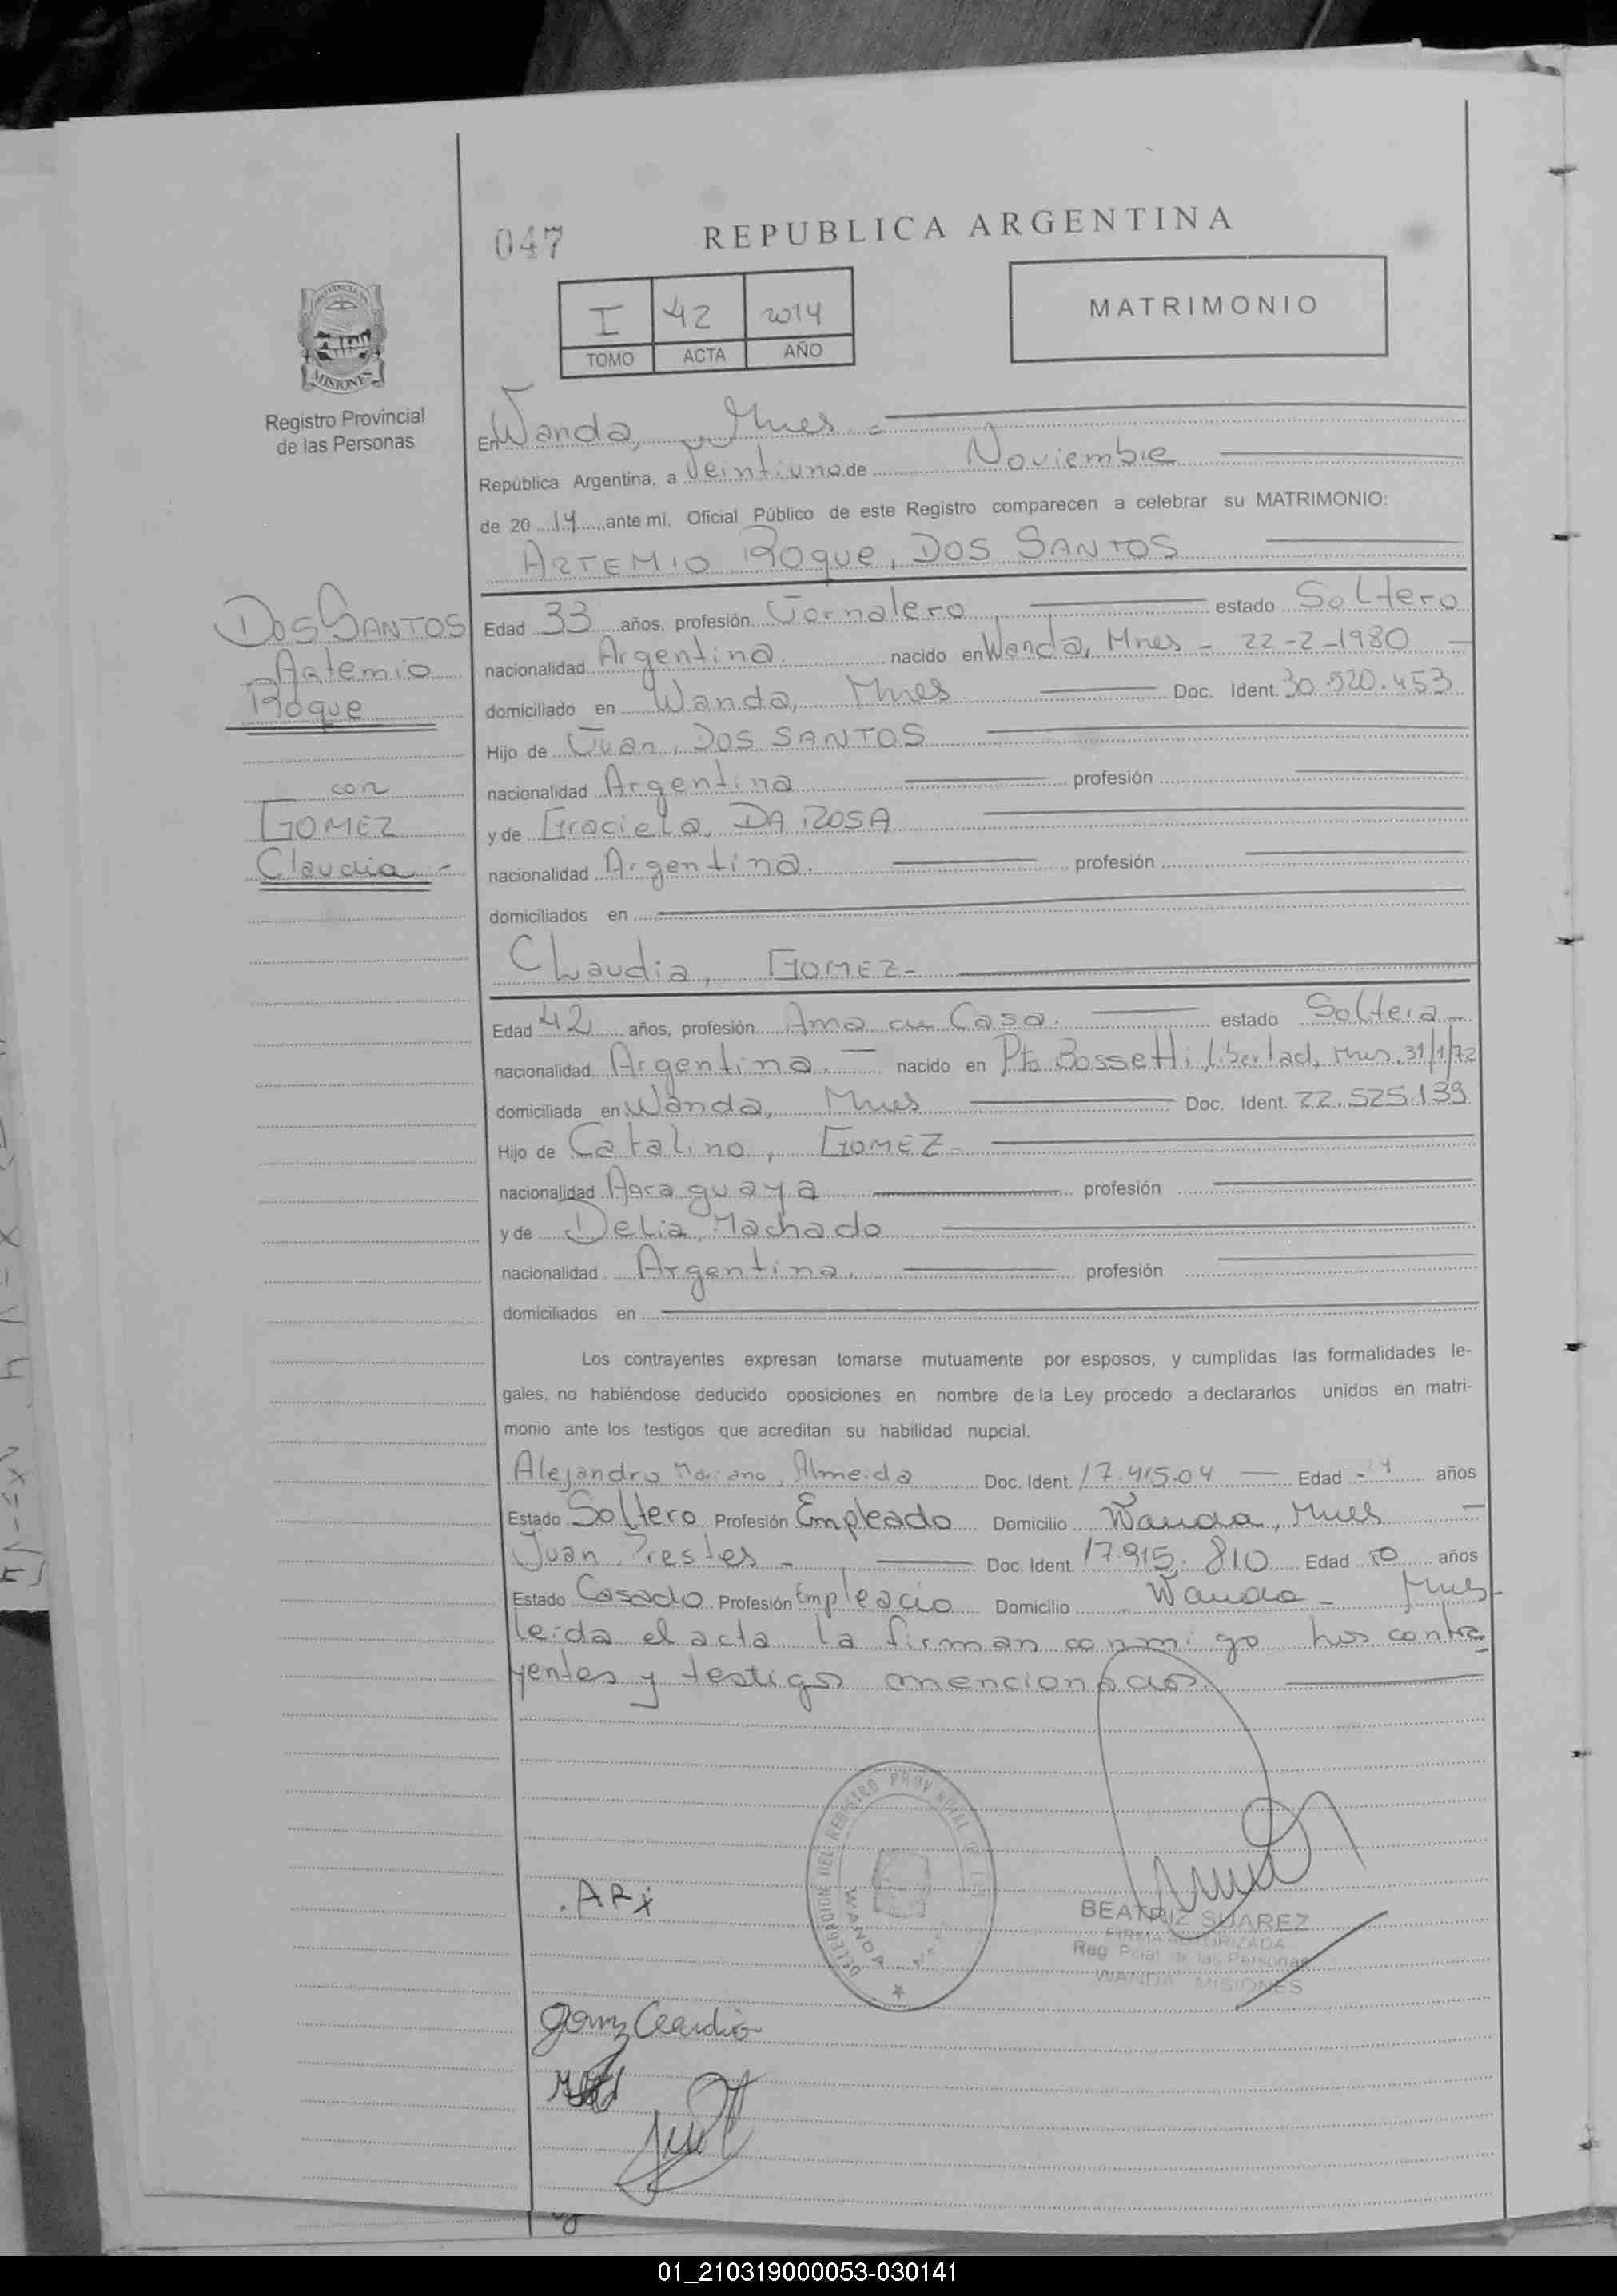 047
REPUBLICA ARGENTINA
I 42 2014
TOMO ACTA AÑO
MATRIMONIO
PROVINCIA DE
MISIONES
Registro Provincial
de las Personas
En Wanda, Mnes -
República Argentina, a Veintiuno de Noviembre
de 20 14 ante mi, Oficial Público de este Registro comparecen a celebrar su MATRIMONIO:
ARTEMIO ROque, DOS SANTOS
DOS SANTOS
Artemio
Roque
con
GOMEZ
Claudia -
Edad 33 años, profesión Jornalero estado Soltero
nacionalidad Argentina. nacido en Wanda, Mnes - 22-2-1980
domiciliado en Wanda, Mnes Doc. Ident. 30.520.453
Hijo de Juan, DOS SANTOS
nacionalidad Argentina profesión
y de Graciela, DA ROSA
nacionalidad Argentina. profesión
domiciliados en
Claudia, GOMEZ-
Edad 42 años, profesión Ama de Casa. estado Soltera
nacionalidad Argentina. nacido en Pto Bossetti, Libertad, Mnes. 31/1/72
domiciliada en Wanda, Mnes Doc. Ident. 22.525.139
Hijo de Catalino, GOMEZ-
nacionalidad Paraguaya profesión
y de Delia, Machado
nacionalidad Argentina. profesión
domiciliados en
Los contrayentes expresan tomarse mutuamente por esposos, y cumplidas las formalidades le-
gales, no habiéndose deducido oposiciones en nombre de la Ley procedo a declararlos unidos en matri-
monio ante los testigos que acreditan su habilidad nupcial.
Alejandro Mariano, Almeida Doc. Ident. Edad años
Estado Soltero Profesión Empleado Domicilio Wanda, Mnes
Juan Prestes - Doc. Ident. 17.915.810 Edad años
Estado Casado Profesión Empleado Domicilio Wanda - Mnes
leida el acta la firman conmigo los contra
yentes y testigos mencionados.
DELEGACION DEL REGISTRO PROVINCIAL DE LAS
WANDA
.ARX
BEATRIZ SUAREZ
FIRMA AUTORIZADA
Reg. Pcial. de las Personas
WANDA MISIONES
Gomez Claudia
01_210319000053-030141